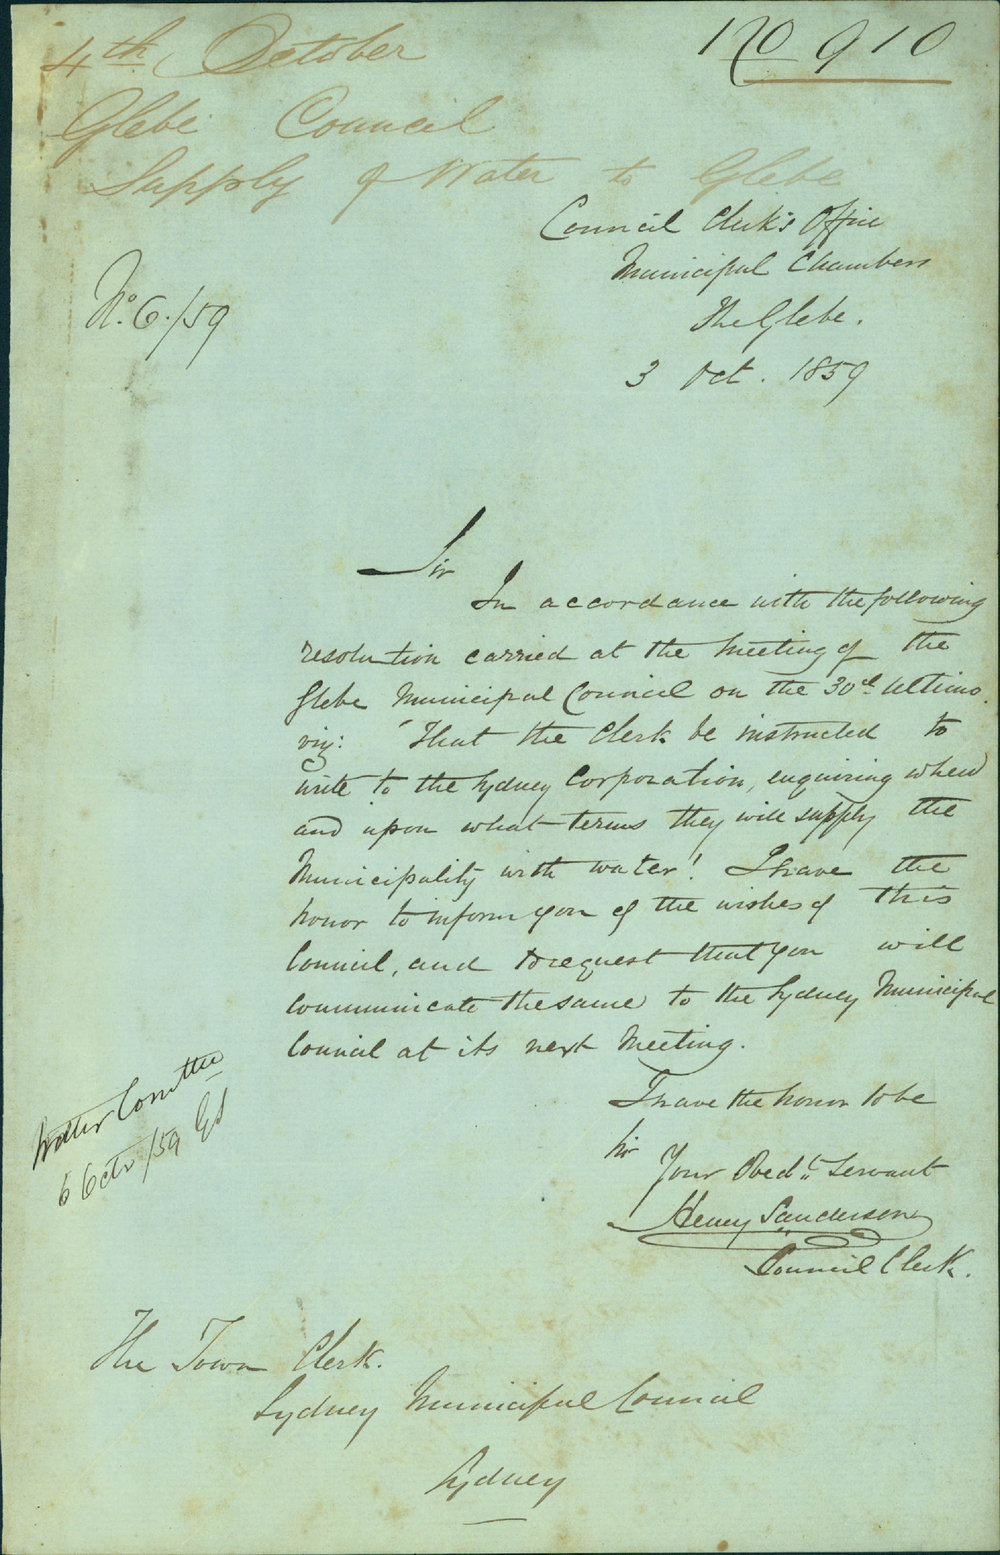 4th October
No 910
Glebe Council
Supply of Water to Glebe
Council Clerk's Office
Municipal Chambers
The Glebe.
3 Oct. 1859
No. 6./59
Sir
In accordance with the following
resolution carried at the Meeting of the
Glebe Municipal Council on the 30th Ultimo.
viz: "That the Clerk be instructed to
write to the Sydney Corporation, enquiring when
and upon what terms they will supply the
Municipality with water". I have the
honor to inform you of the wishes of this
Council, and to request that you will
communicate the same to the Sydney Municipal
Council at its next Meeting.
I have the honor to be
Sir
Your Obedt. Servant
Henry Sanderson
Council Clerk.
Water Comttee
6 Octr/59
The Town Clerk.
Sydney Municipal Council
Sydney